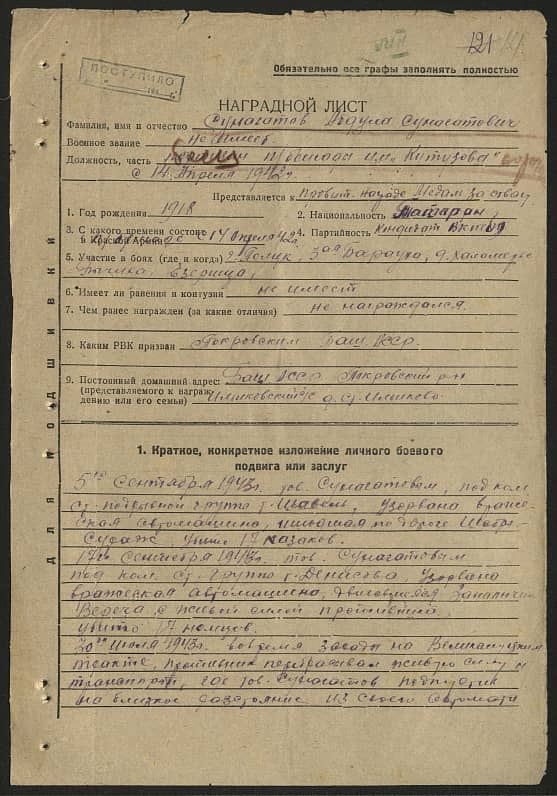 121
ПОСТУПИЛО
Обязательно все графы заполнять полностью
НАГРАДНОЙ ЛИСТ
Фамилия, имя и отчество Сунагатов Абдула Сунагатович
Военное звание не имеет
Должность, часть бригада им. Кутузова"
с 14 апреля 1942г.
Представляется к Правит. награде Медаль За отвагу
1. Год рождения 1918 2. Национальность Татарин
3. С какого времени состоит в Красной Армии с 14 апреля 42г. 4. Партийность Кандидат ВКП(б)
5. Участие в боях (где и когда)
6. Имеет ли ранения и контузии не имеет
7. Чем ранее награжден (за какие отличия) не награждался.
8. Каким РВК призван Покровским Баш. АССР.
9. Постоянный домашний адрес: Баш АССР Покровский р-н
(представляемого к награждению или его семьи) Иликовский с/с д. Ст. Иликово
ДЛЯ ПОДШИВКИ
1. Краткое, конкретное изложение личного боевого
подвига или заслуг
5го Сентября 1943г. тов. Сунагатовым, под ком.
ст. подрывной группы т. взорвана враже-
ская автомашина, идущая по дороге
убито 17 казаков.
17го Сентября 1943г. тов. Сунагатовым
под ком. ст. группы т. Денисова, взорвана
вражеская автомашина, двигавшаяся
с живой силой противника
убито 17 немцев.
20го июля 1943г. вовремя засады на
тракте, противник перебрасывал живую силу и
транспорт, где тов. Сунагатов подпустив
на близкое расстояние из своего автомата